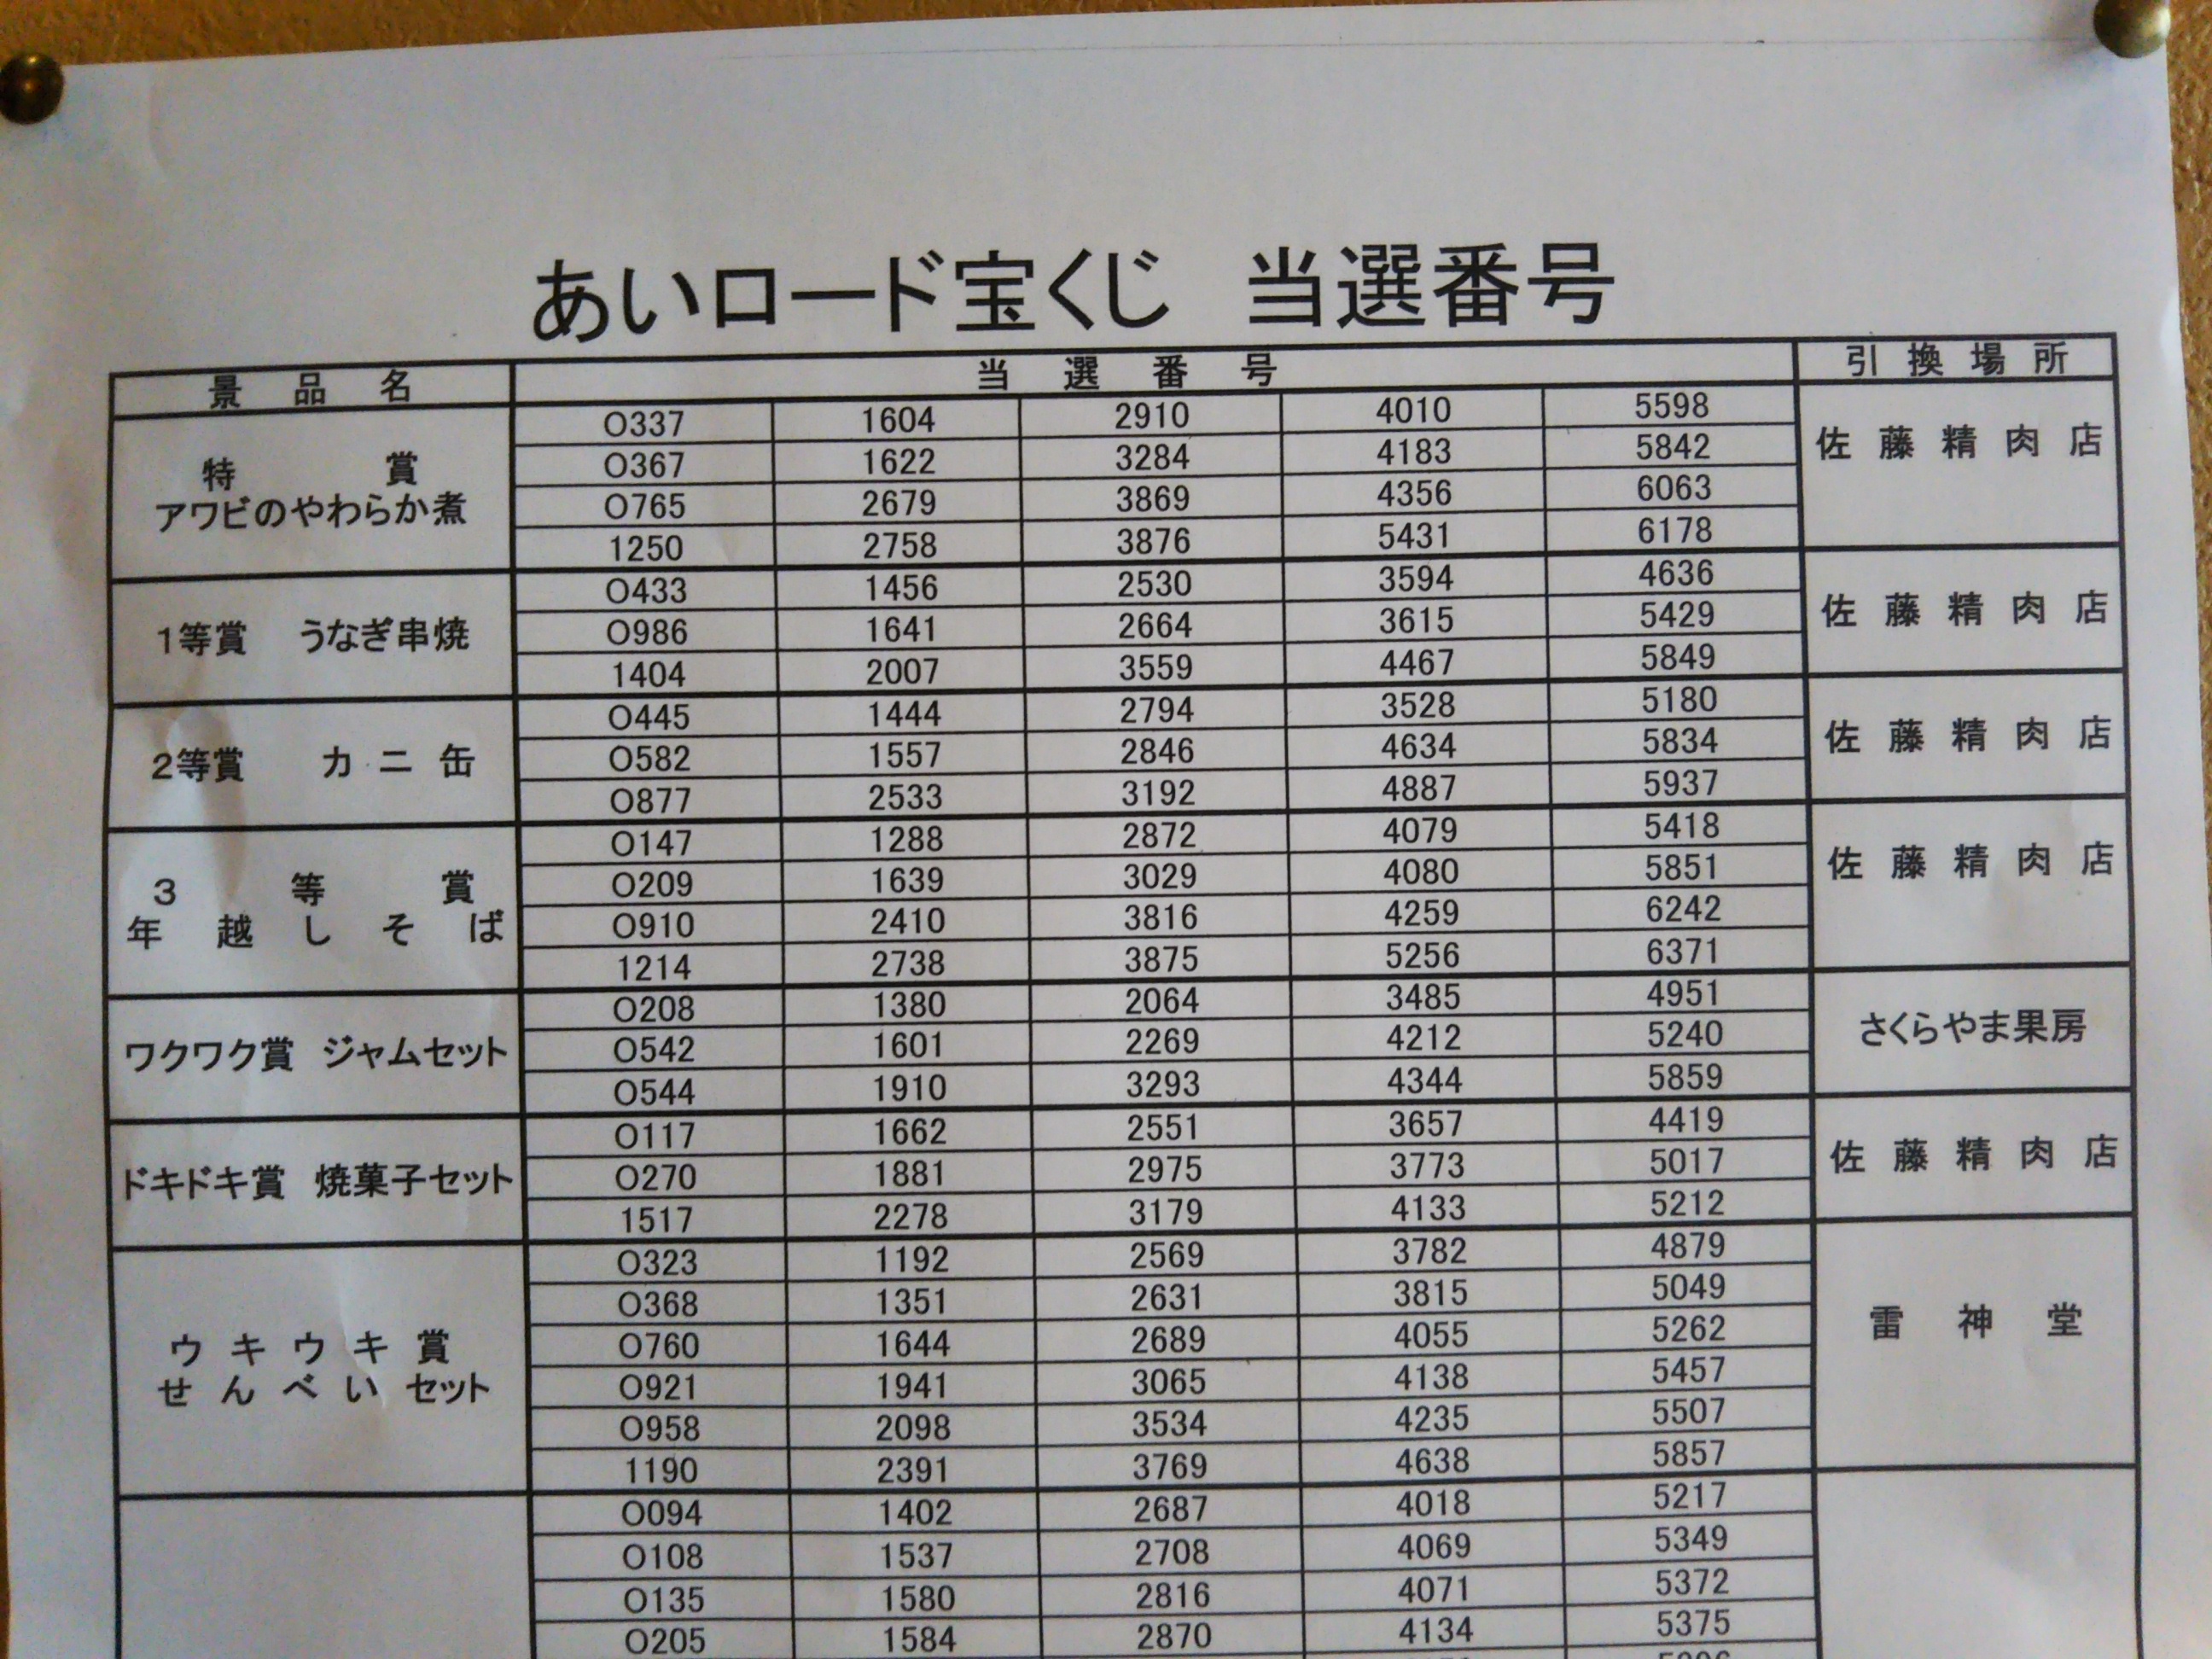 あいロード宝くじ 当選番号
景品名 当選番号 引換場所
特賞 アワビのやわらか煮 佐藤精肉店
O337 1604 2910 4010 5598
O367 1622 3284 4183 5842
O765 2679 3869 4356 6063
1250 2758 3876 5431 6178
1等賞 うなぎ串焼 佐藤精肉店
O433 1456 2530 3594 4636
O986 1641 2664 3615 5429
1404 2007 3559 4467 5849
2等賞 カニ缶 佐藤精肉店
O445 1444 2794 3528 5180
O582 1557 2846 4634 5834
O877 2533 3192 4887 5937
3等賞 年越しそば 佐藤精肉店
O147 1288 2872 4079 5418
O209 1639 3029 4080 5851
O910 2410 3816 4259 6242
1214 2738 3875 5256 6371
ワクワク賞 ジャムセット さくらやま果房
O208 1380 2064 3485 4951
O542 1601 2269 4212 5240
O544 1910 3293 4344 5859
ドキドキ賞 焼菓子セット 佐藤精肉店
O117 1662 2551 3657 4419
O270 1881 2975 3773 5017
1517 2278 3179 4133 5212
ウキウキ賞 せんべいセット 雷神堂
O323 1192 2569 3782 4879
O368 1351 2631 3815 5049
O760 1644 2689 4055 5262
O921 1941 3065 4138 5457
O958 2098 3534 4235 5507
1190 2391 3769 4638 5857
O094 1402 2687 4018 5217
O108 1537 2708 4069 5349
O135 1580 2816 4071 5372
O205 1584 2870 4134 5375